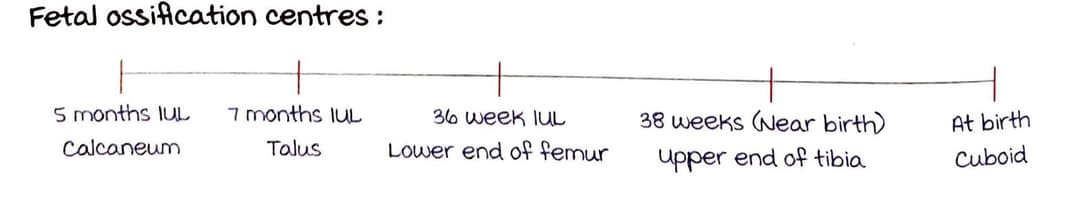 Fetal ossification centres :
5 months IUL
Calcaneum
7 months IUL
Talus
36 week IUL
Lower end of femur
38 weeks (Near birth)
upper end of tibia
At birth
Cuboid